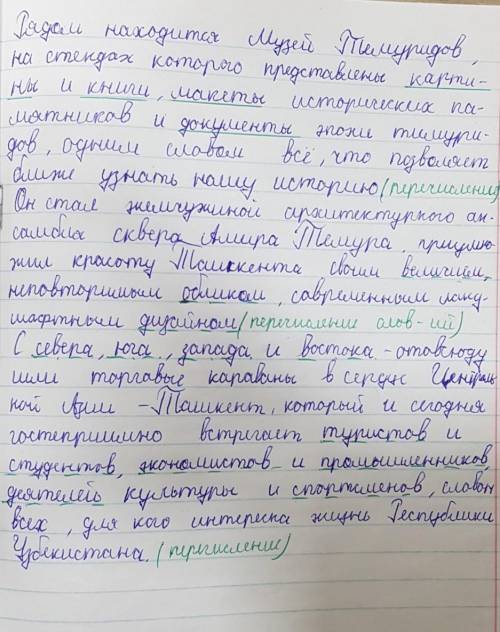 Рядом находится Музей Темуридов,
на стендах которого представлены карти-
ны и книги, макеты исторических па-
мятников и документы эпохи тимури-
дов, одним словом всё, что позволяет
ближе узнать нашу историю (перечисление)
Он стал жемчужиной архитектурного ан-
самбля сквера Амира Темура, приумно-
жил красоту Ташкента своим величием,
неповторимым обликом, современным ланд-
шафтным дизайном (перечисление опов-ий)
С севера, юга, запада и востока - отовсюду
шли торговые караваны в сердце Централь
ной Азии - Ташкент, который и сегодня
гостеприимно встречает туристов и
студентов, экономистов и промышленников,
деятелей культуры и спортсменов, словом
всех, для кого интересна жизнь Республики
Узбекистана. (перечисление)